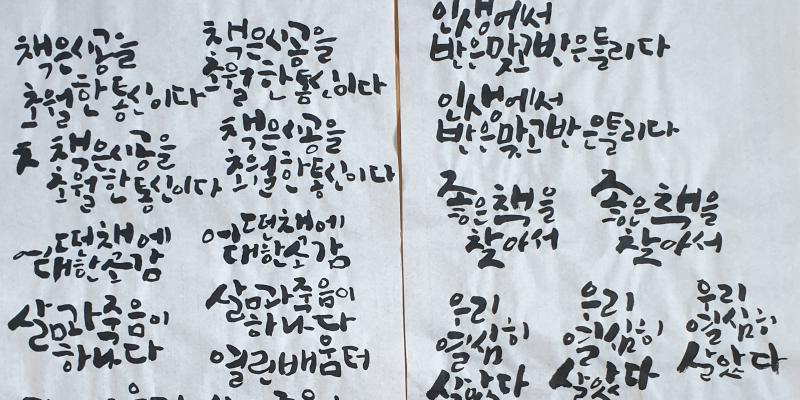 책은시공을
초월한통신이다
책은시공을
초월한통신이다
책은시공을
초월한통신이다
책은시공을
초월한통신이다
어떤책에
대한소감
어떤책에
대한소감
삶과죽음이
하나다
삶과죽음이
하나다
열린배움터
인생에서
반은맞고반은틀리다
인생에서
반은맞고반은틀리다
좋은책을
찾아서
좋은책을
찾아서
우리
열심히
살았다
우리
열심히
살았다
우리
열심히
살았다